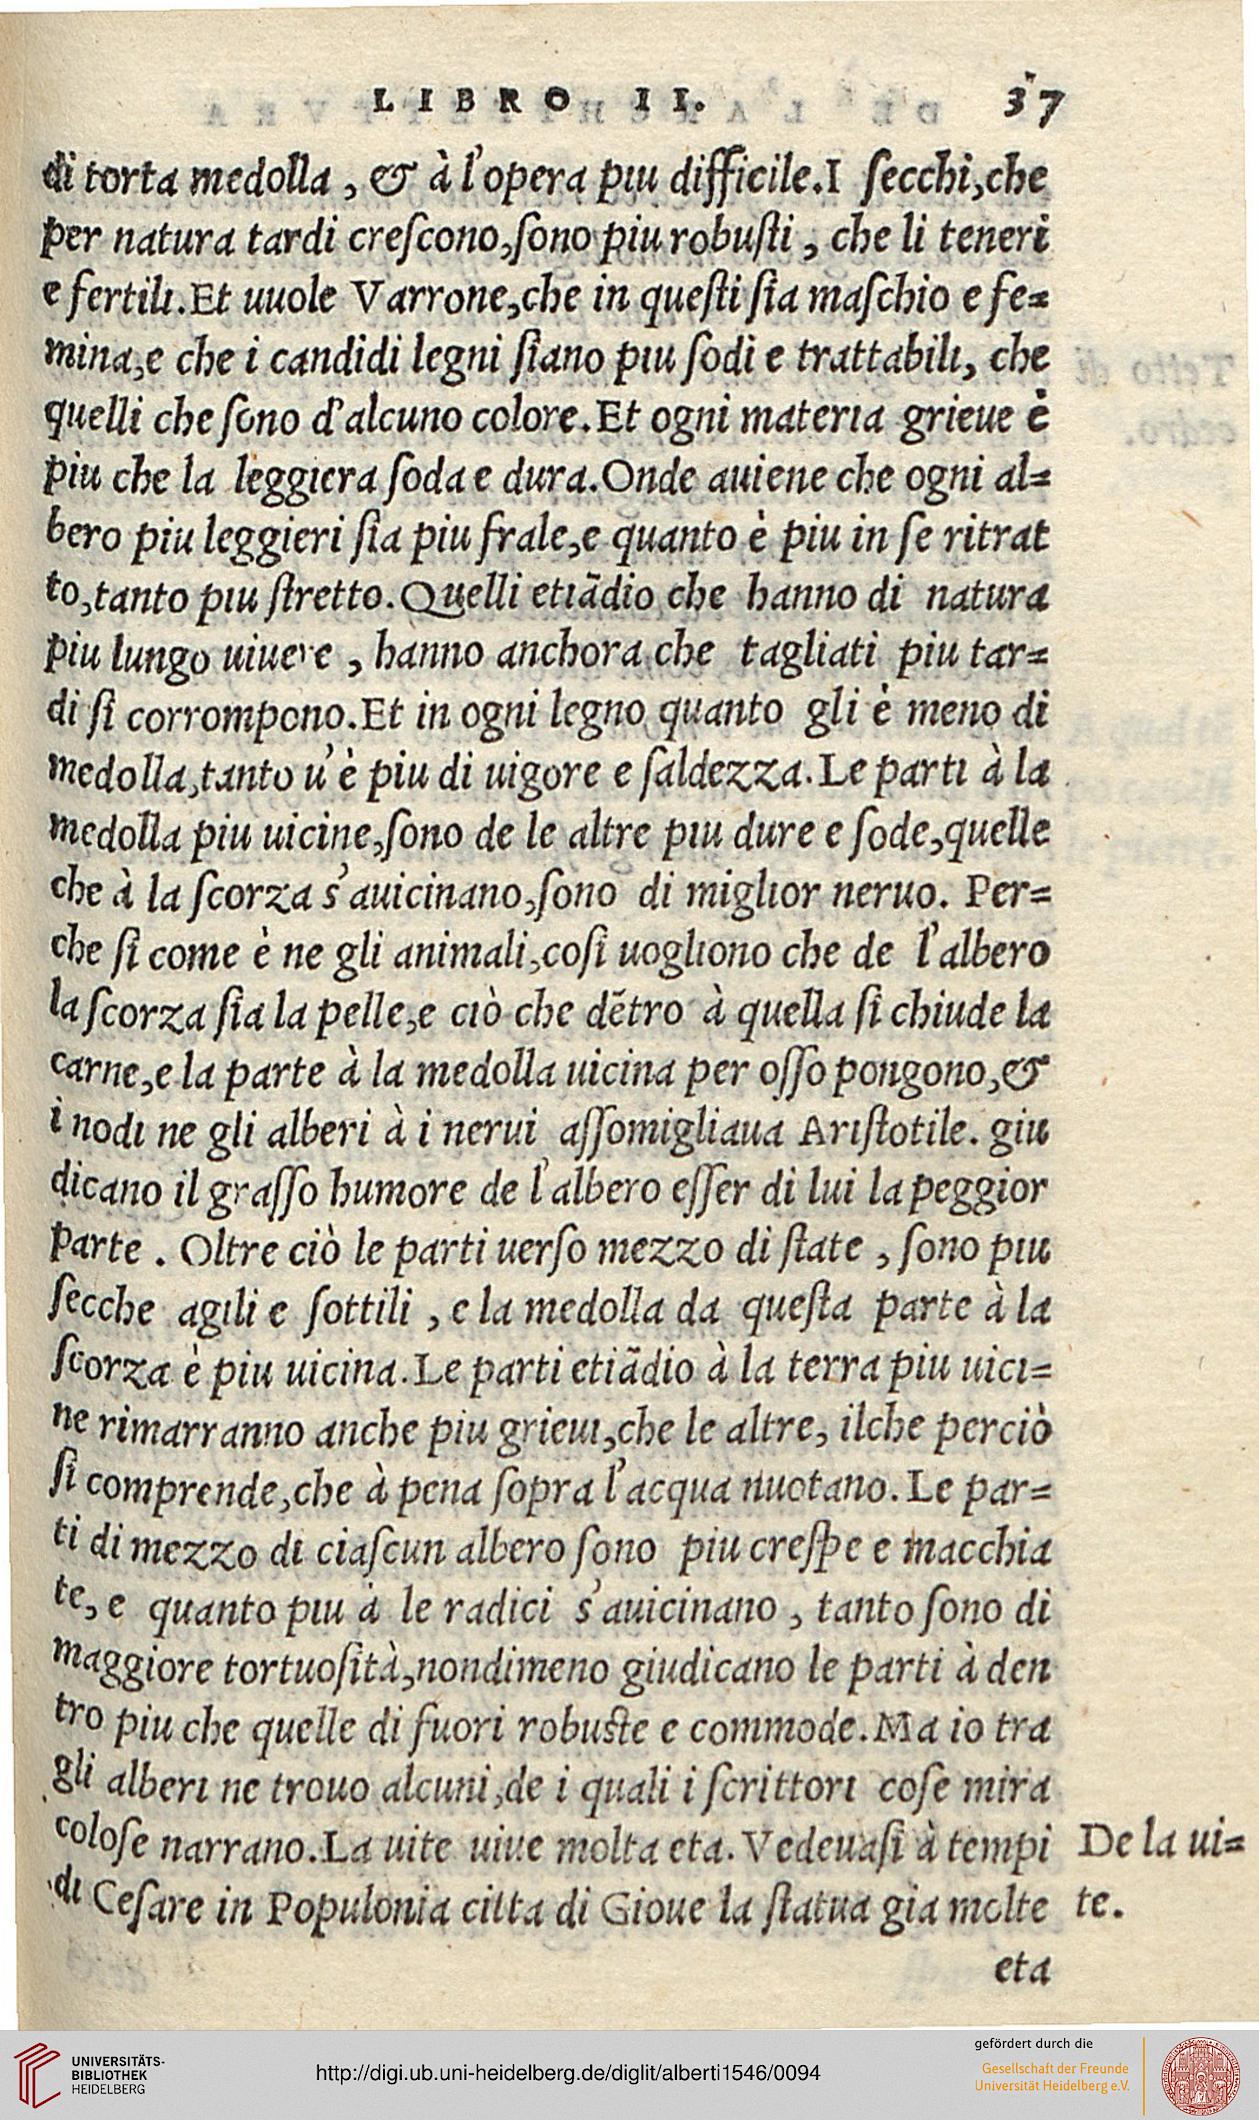 LIBRO II. 37
di torta medolla, & à l'opera piu difficile.I ſecchi,che
per natura tardi creſcono,ſono piu robuſti, che li teneri
e fertili.Et uuole Varrone,che in queſti ſia maſchio e fe=
mina,e che i candidi legni ſiano piu ſodi e trattabili, che
quelli che ſono d'alcuno colore.Et ogni materia grieue è
piu che la leggiera ſoda e dura.Onde auiene che ogni al=
bero piu leggieri ſia piu frale,e quanto è piu in ſe ritrat
to,tanto piu ſtretto.Quelli etiãdio che hanno di natura
piu lungo uiuere, hanno anchora che tagliati piu tar=
di ſi corrompono.Et in ogni legno quanto gli è meno di
medolla,tanto u'è piu di uigore e ſaldezza.Le parti à la
medolla piu uicine,ſono de le altre piu dure e ſode,quelle
che à la ſcorza s'auicinano,ſono di miglior neruo. Per=
che ſi come è ne gli animali,coſi uogliono che de l'albero
la ſcorza ſia la pelle,e ciò che dẽtro à quella ſi chiude la
carne,e la parte à la medolla uicina per oſſo pongono,&
i nodi ne gli alberi à i nerui aſſomigliaua Ariſtotile. giu
dicano il graſſo humore de l'albero eſſer di lui la peggior
parte. Oltre ciò le parti uerſo mezzo di ſtate, ſono piu
ſecche agili e ſottili, e la medolla da queſta parte à la
ſcorza è piu uicina.Le parti etiãdio à la terra piu uici=
ne rimarranno anche piu grieui,che le altre, ilche perciò
ſi comprende,che à pena ſopra l'acqua nuotano.Le par=
ti di mezzo di ciaſcun albero ſono piu creſpe e macchia
te, e quanto piu à le radici s'auicinano, tanto ſono di
maggiore tortuoſità,nondimeno giudicano le parti à den
tro piu che quelle di fuori robuſte e commode.Ma io tra
gli alberi ne trouo alcuni,de i quali i ſcrittori coſe mira
coloſe narrano.La uite uiue molta eta. Vedeuaſi à tempi
di Ceſare in Populonia citta di Gioue la ſtatua gia molte
eta
De la ui=
te.
UNIVERSITÄTS-
BIBLIOTHEK
HEIDELBERG
http://digi.ub.uni-heidelberg.de/diglit/alberti1546/0094
gefördert durch die
Gesellschaft der Freunde
Universität Heidelberg e.V.